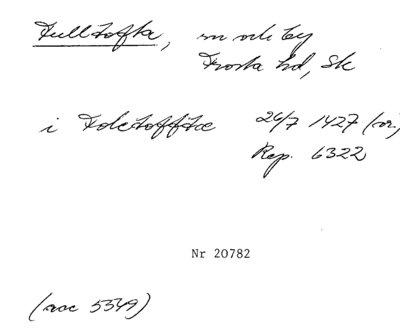 Fulltofta, sn och by
Frosta hd, Sk
i Foletofftæ 26/7 1427 (or.)
Rep. 6322
Nr 20782
(acc 5549)